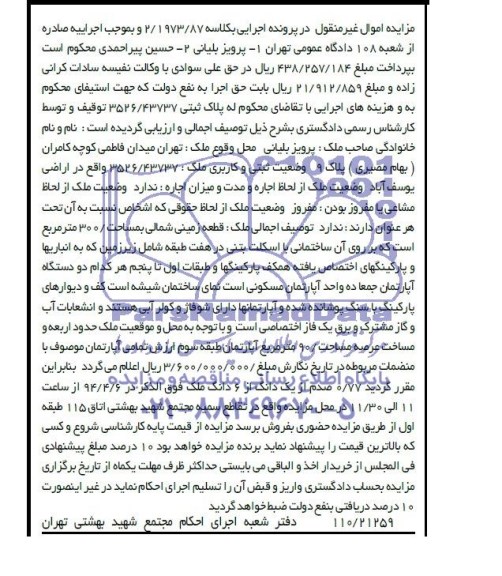 مزایده اموال غیرمنقول در پرونده اجرایی بکلاسه ۲/۱۹۷۳/۸۷ و بموجب اجراییه صادره
از شعبه ۱۰۸ دادگاه عمومی تهران ۱- پرویز بلیانی ۲- حسین پیراحمدی محکوم است
بپرداخت مبلغ ۴۳۸/۲۵۷/۱۸۴ ریال در حق علی سوادی با وکالت نفیسه سادات کرانی
زاده و مبلغ ۲۱/۹۱۲/۸۵۹ ریال بابت حق اجرا به نفع دولت که جهت استیفای محکوم
به و هزینه های اجرایی با تقاضای محکوم له پلاک ثبتی ۳۵۲۶/۴۳۷۳۷ توقیف و توسط
کارشناس رسمی دادگستری بشرح ذیل توصیف اجمالی و ارزیابی گردیده است : نام و نام
خانوادگی صاحب ملک : پرویز بلیانی محل وقوع ملک : تهران میدان فاطمی کوچه کامران
( بهام مصیری ) پلاک ۹ وضعیت ثبتی و کاربری ملک : ۳۵۲۶/۴۳۷۳۷ واقع در اراضی
یوسف آباد وضعیت ملک از لحاظ اجاره و مدت و میزان اجاره : ندارد وضعیت ملک از لحاظ
مشاعی یا مفروز بودن : مفروز وضعیت ملک از لحاظ حقوقی که اشخاص نسبت به آن تحت
هر عنوان دارند : ندارد توصیف اجمالی ملک : قطعه زمینی شمالی بمساحت ۳۰۰/ مترمربع
است که بر روی آن ساختمانی با اسکلت بتنی در هفت طبقه شامل زیرزمین که به انباریها
و پارکینگهای اختصاص یافته همکف پارکینگها و طبقات اول تا پنجم هر کدام دو دستگاه
آپارتمان جمعا ده واحد آپارتمان مسکونی است نمای ساختمان شیشه است کف و دیوارهای
پارکینگ با سنگ پوشانده شده و آپارتمانها دارای شوفاژ و کولر آبی هستند و انشعابات آب
و گاز مشترک و برق تک فاز اختصاصی است و با توجه به محل و موقعیت ملک حدود اربعه و
مساحت عرصه مساحت ۹۰/ مترمربع آپارتمان طبقه سوم ارزش تمامی آپارتمان موصوف با
منضمات مربوطه در تاریخ نگارش مبلغ ۳/۶۰۰/۰۰۰/۰۰۰ ریال اعلام می گردد بنابراین
مقرر گردید ۰/۷۷ صدم از یک دانگ از ۶ دانگ ملک فوق الذکر در ۹۴/۴/۶ از ساعت
۱۱ الی ۱۱/۳۰ در محل مزایده واقع در تقاطع سمیه مجتمع شهید بهشتی اتاق ۱۱۵ طبقه
اول از طریق مزایده حضوری بفروش برسد مزایده از قیمت پایه کارشناسی شروع و کسی
که بالاترین قیمت را پیشنهاد نماید برنده مزایده خواهد بود ۱۰ درصد مبلغ پیشنهادی
فی المجلس از خریدار اخذ و الباقی می بایستی حداکثر ظرف مهلت یکماه از تاریخ برگزاری
مزایده بحساب دادگستری واریز و قبض آن را تسلیم اجرای احکام نماید در غیر اینصورت
۱۰ درصد دریافتی بنفع دولت ضبط خواهد گردید
۱۱۰/۲۱۲۵۹ دفتر شعبه اجرای احکام مجتمع شهید بهشتی تهران
ParsNamadData
پایگاه اطلاع رسانی مناقصه و مزایده
۰۲۱-۸۸۳۴۹۶۷۰-۵